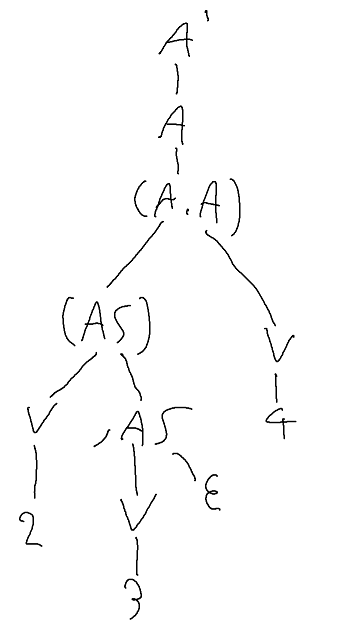 A'
A
(A.A)
(AS)
V
V
,AS
4
ε
2
V
3